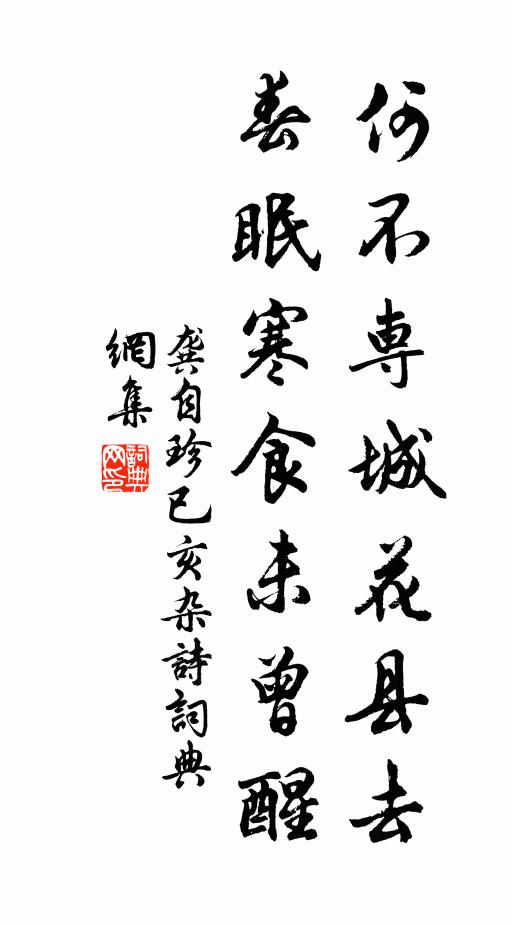 何不専城花县去
春眠寒食未曾醒
龚自珍己亥杂詩詞典
網集
詞典
网印